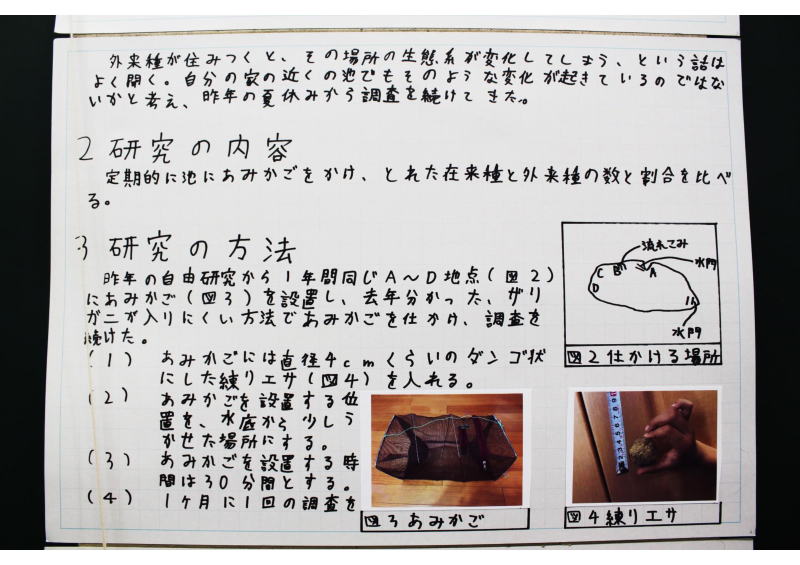 外来種が住みつくと、その場所の生態系が変化してしまう、という話は
よく聞く。自分の家の近くの池でもそのような変化が起きているのではな
いかと考え、昨年の夏休みから調査を続けてきた。
2 研究の内容
定期的に池にあみかごをかけ、とれた在来種と外来種の数と割合を比べ
る。
3 研究の方法
昨年の自由研究から1年間同じA～D地点(図2)
にあみかご(図3)を設置し、去年分かった、ザリ
ガニが入りにくい方法であみかごを仕かけ、調査を
続けた。
(1) あみかごには直径4cmくらいのダンゴ状
にした練りエサ(図4)を入れる。
(2) あみかごを設置する位
置を、水底から少しう
かせた場所にする。
(3) あみかごを設置する時
間は30分間とする。
(4) 1ヶ月に1回の調査を
流れこみ
水門
C B A
D
水門
図2仕かける場所
図3あみかご
図4練りエサ